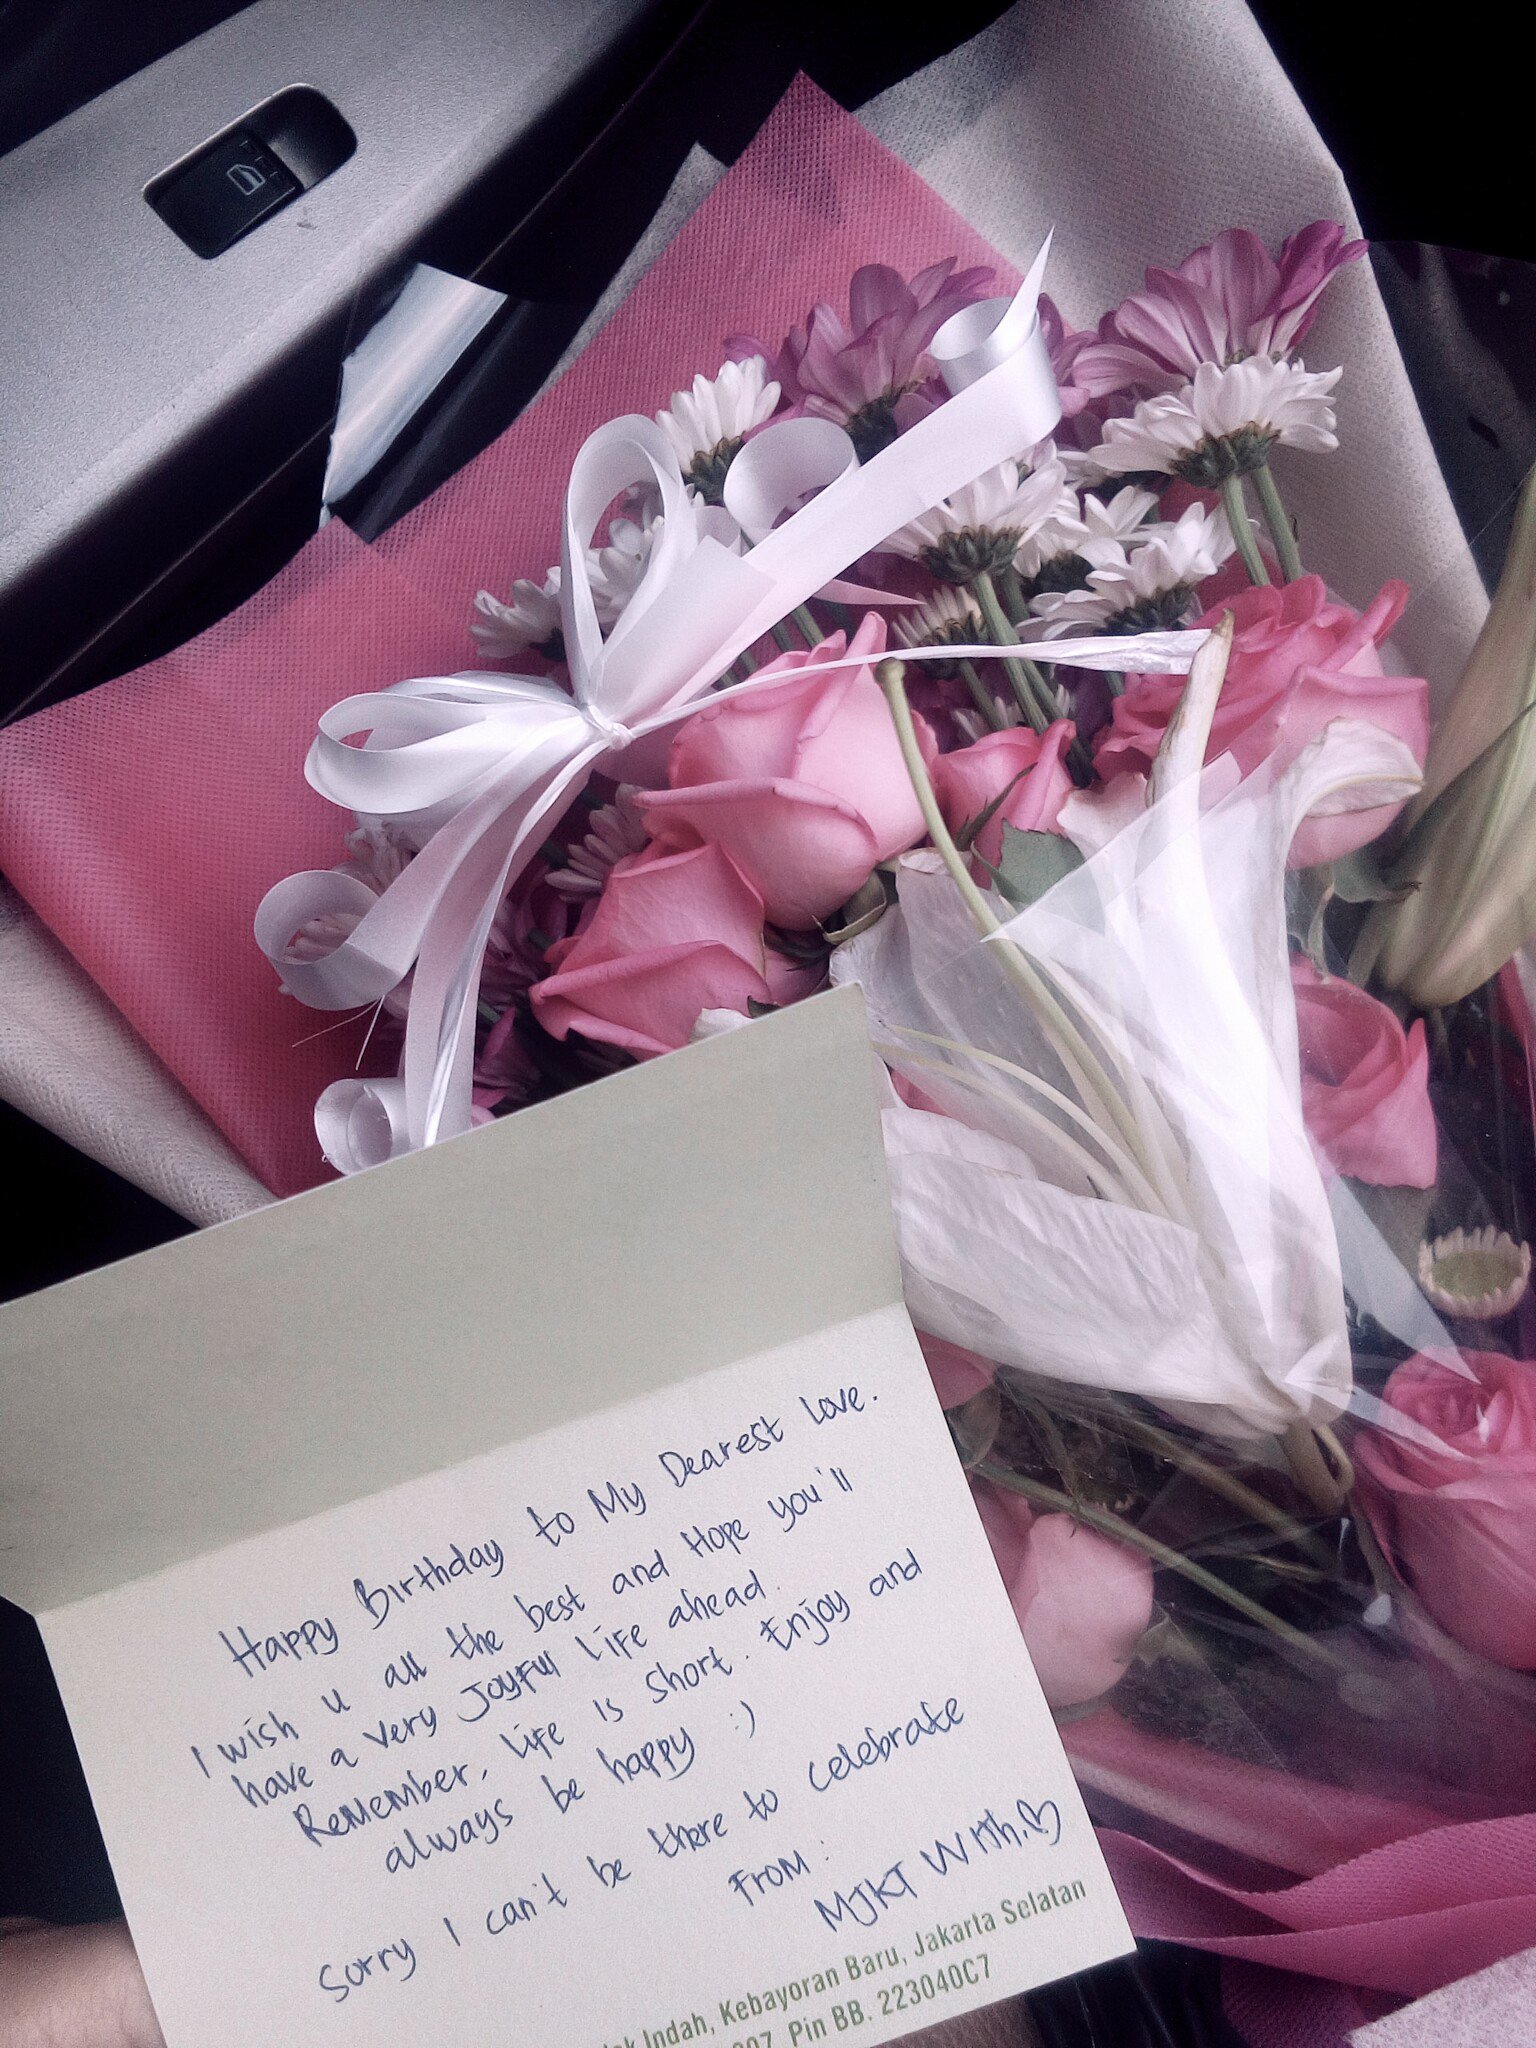 Happy Birthday to My Dearest Love.
I wish u all the best and Hope you'll
have a very Joyful life ahead.
Remember, life is short. Enjoy and
always be happy :)
Sorry I can't be there to celebrate
From:
MJKT With ♡
Indah, Kebayoran Baru, Jakarta Selatan
Pin BB. 223040C7